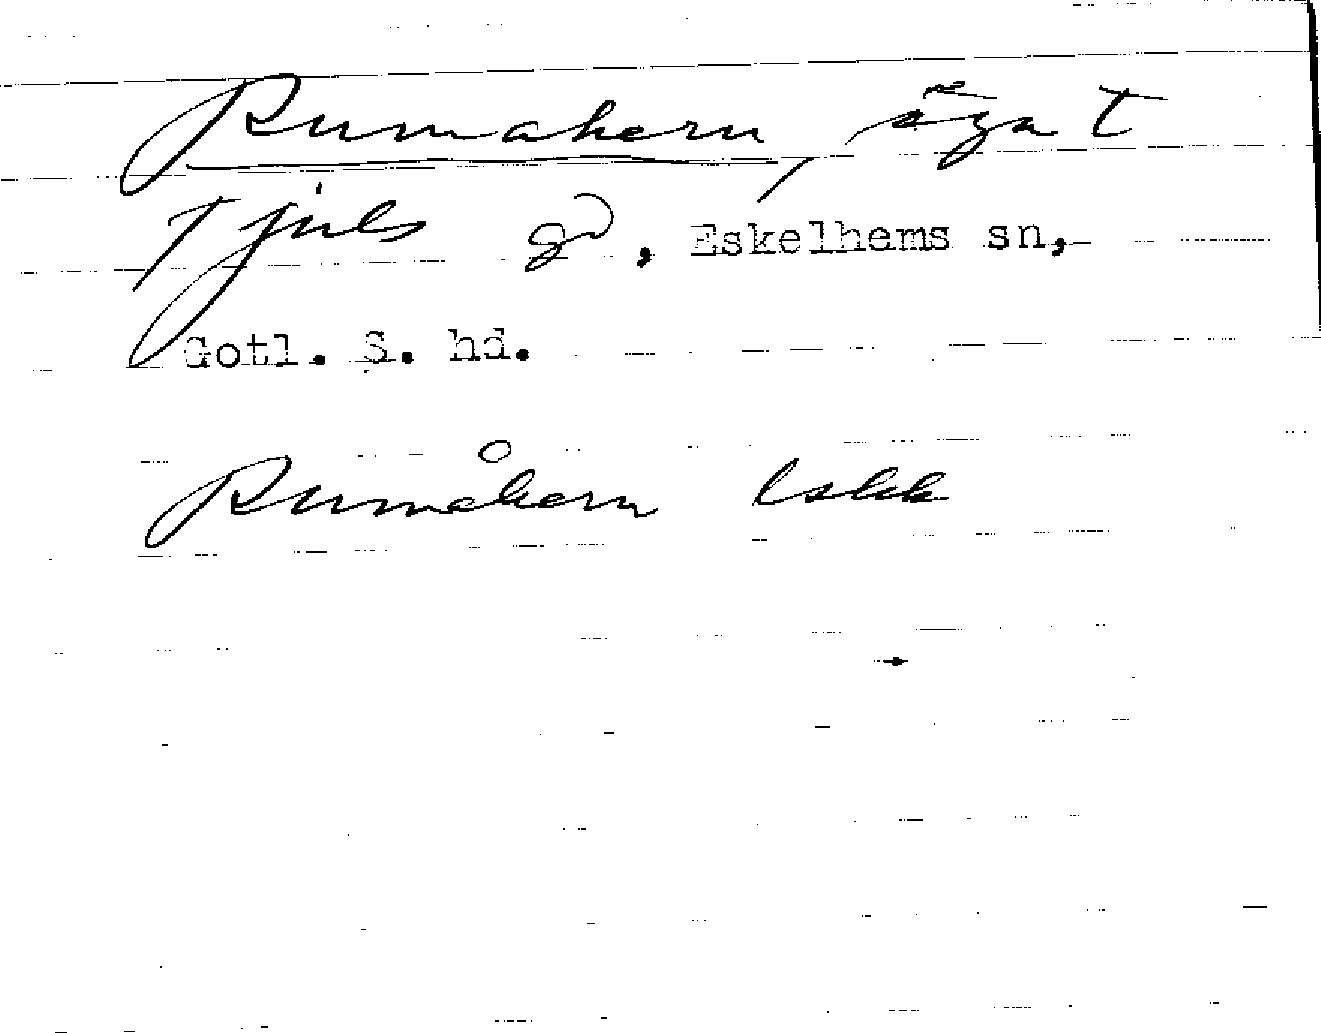 Rumakern, äga t
Tjuls gd, Eskelhems sn,
Gotl. S. hd.
Rumåkern